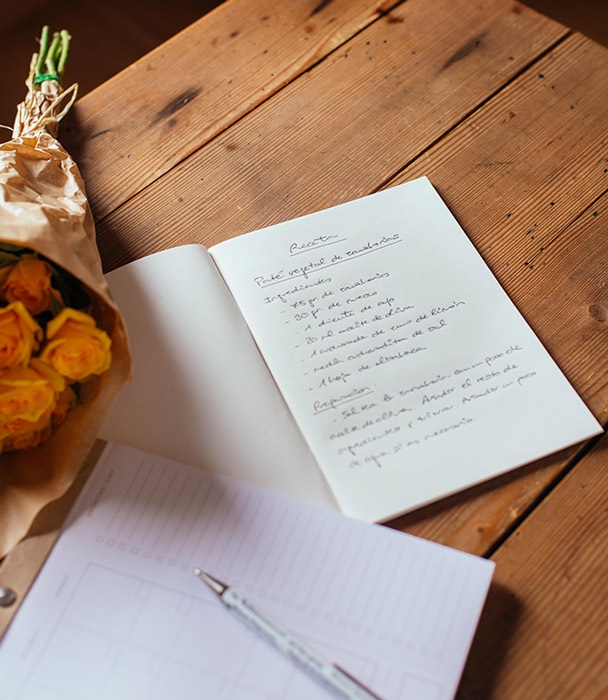 Receta
Paté vegetal de zanahorias
Ingredientes
- 75 gr. de zanahorias
- 30 gr. de nueces
- 1 diente de ajo
- 20 ml aceite de oliva
- 1 cucharada de zumo de limón
- media cucharadita de sal
- 1 hoja de albahaca
Preparación
- Saltea la zanahoria con un poco de
aceite de oliva. Añadir el resto de
ingredientes y triturar. Añadir un poco
de agua si es necesario.